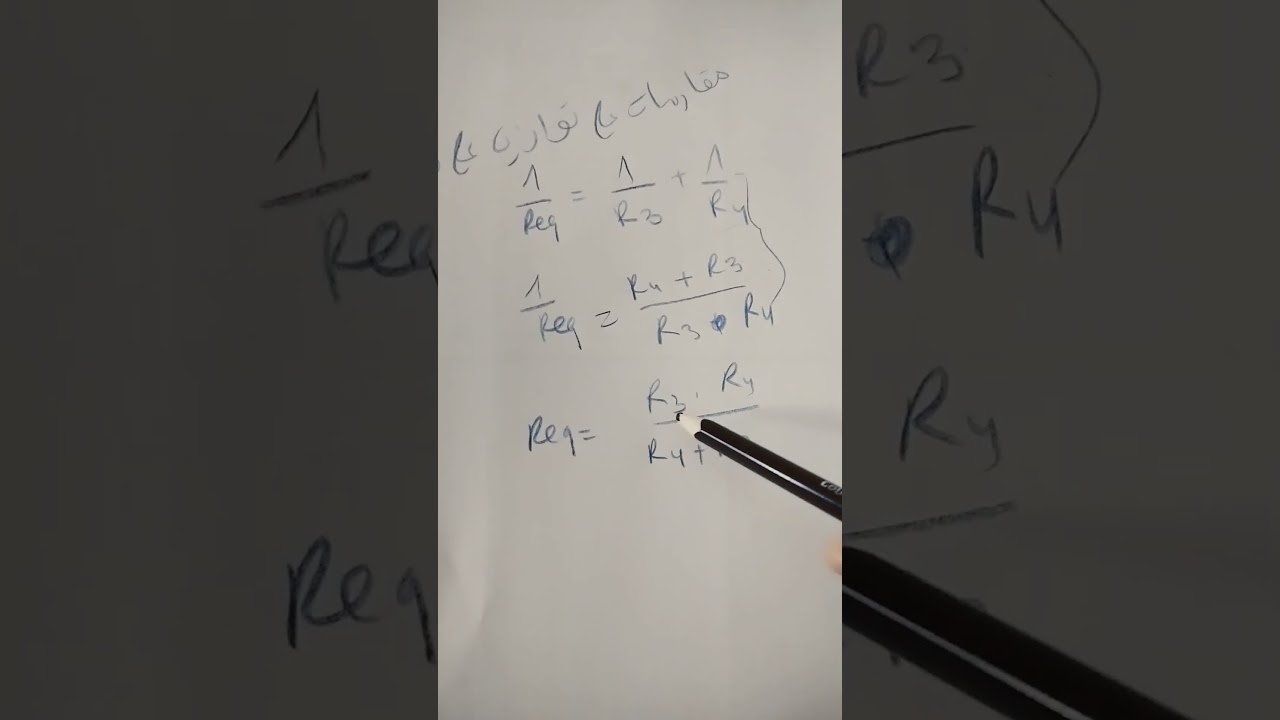 مقاومات ع توازي
1/Req = 1/R3 + 1/R4
1/Req = R4 + R3 / R3 • R4
Req = R3 . R4 / R4 +